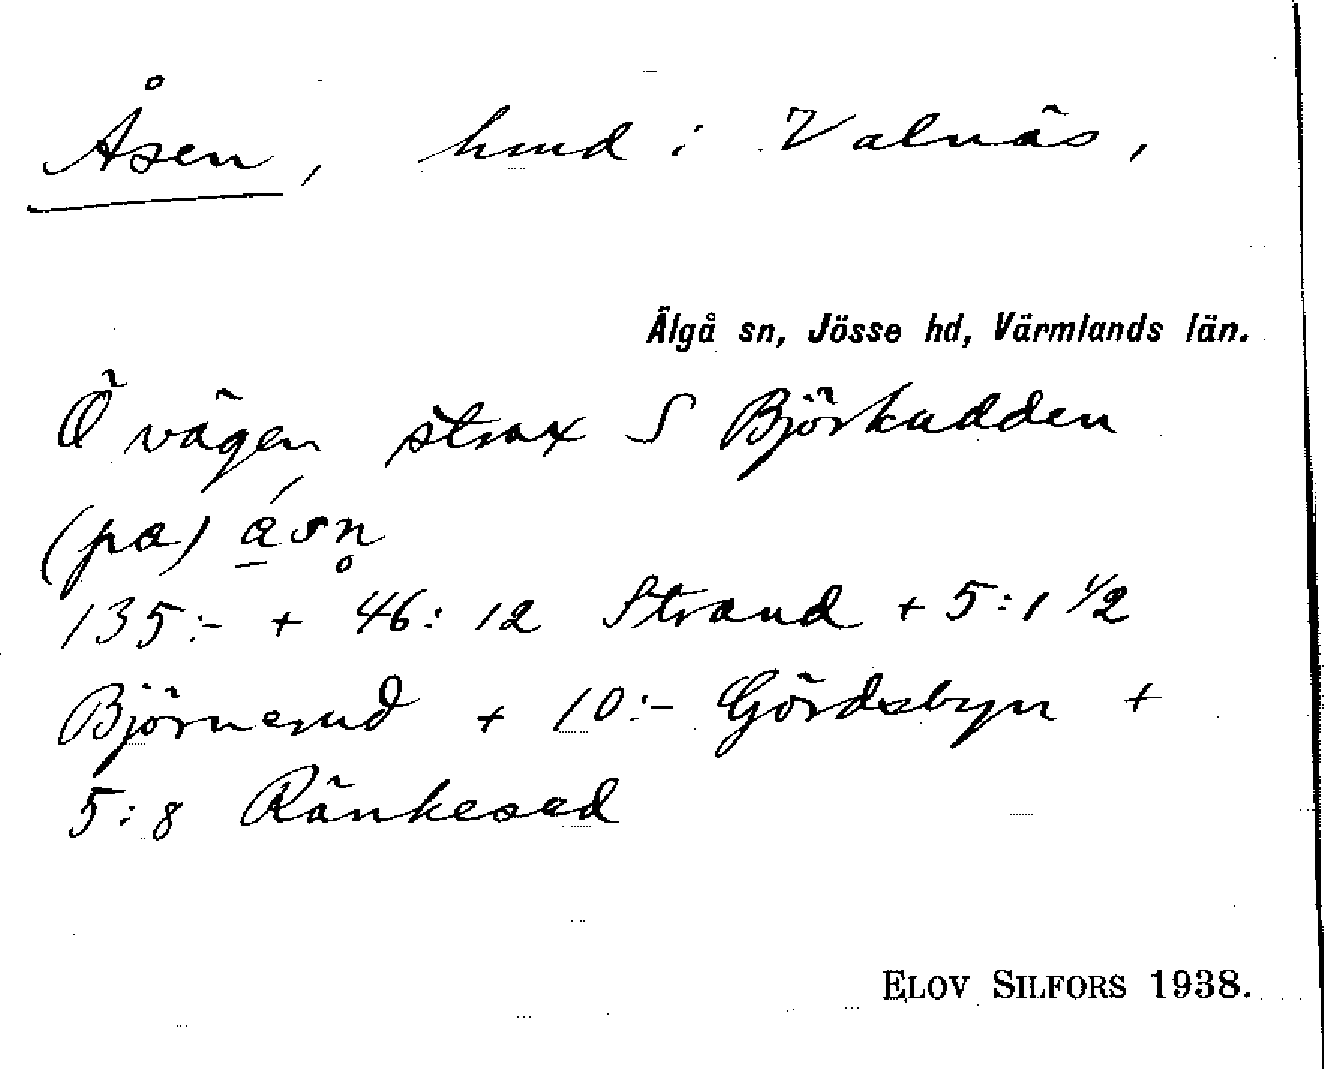 Åsen, hmd i Valnäs,
Älgå sn, Jösse hd, Värmlands län.
Ö vägen strax S Björkudden
(pa) a̱´sn̥
135:- + 46:12 Strand + 5:1 ½
Björnerud + 10:- Gördsbyn +
5:8 Ränkesed
ELOV SILFORS 1938.